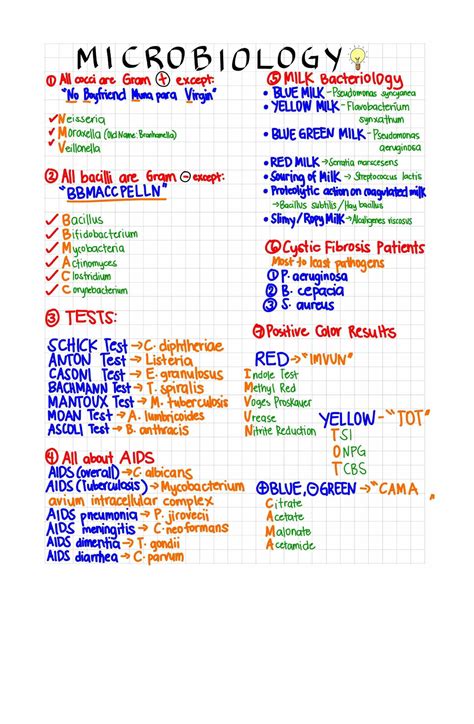 MICROBIOLOGY
① All cocci are Gram ⊕ except:
"No Boyfriend Muna para Virgin"
✓ Neisseria
✓ Moraxella (Old Name: Branhamella)
✓ Veillonella
② All bacilli are Gram ⊖ except:
"BBMACCPELLN"
✓ Bacillus
✓ Bifidobacterium
✓ Mycobacteria
✓ Actinomyces
✓ Clostridium
✓ Corynebacterium
③ TESTS:
SCHICK Test → C. diphtheriae
ANTON Test → Listeria
CASONI Test → E. granulosus
BACHMANN Test → T. spiralis
MANTOUX Test → M. tuberculosis
MOAN Test → A. lumbricoides
ASCOLI Test → B. anthracis
④ All about AIDS
AIDS (overall) → C. albicans
AIDS (Tuberculosis) → Mycobacterium
avium intracellular complex
AIDS pneumonia → P. jirovecii
AIDS meningitis → C. neoformans
AIDS dimentia → T. gondii
AIDS diarrhea → C. parvum
⑤ MILK Bacteriology
• BLUE MILK - Pseudomonas syncyanea
• YELLOW MILK - Flavobacterium
synxathum
• BLUE GREEN MILK - Pseudomonas
aeruginosa
• RED MILK → Serratia marscesens
• Souring of Milk → Streptococcus lactis
• Proteolytic action on coagulated milk
→ Bacillus subtilis / Hay bacillus
• Slimy/Ropy Milk → Alcaligenes viscosus
⑥ Cystic Fibrosis Patients
Most to least pathogens
① P. aeruginosa
② B. cepacia
③ S. aureus
⑦ Positive Color Results
RED → "IMVUN"
Indole Test
Methyl Red
Voges Proskauer
Urease
Nitrite Reduction
YELLOW - "TOT"
TSI
ONPG
TCBS
⊕BLUE, ⊖GREEN → "CAMA"
Citrate
Acetate
Malonate
Acetamide